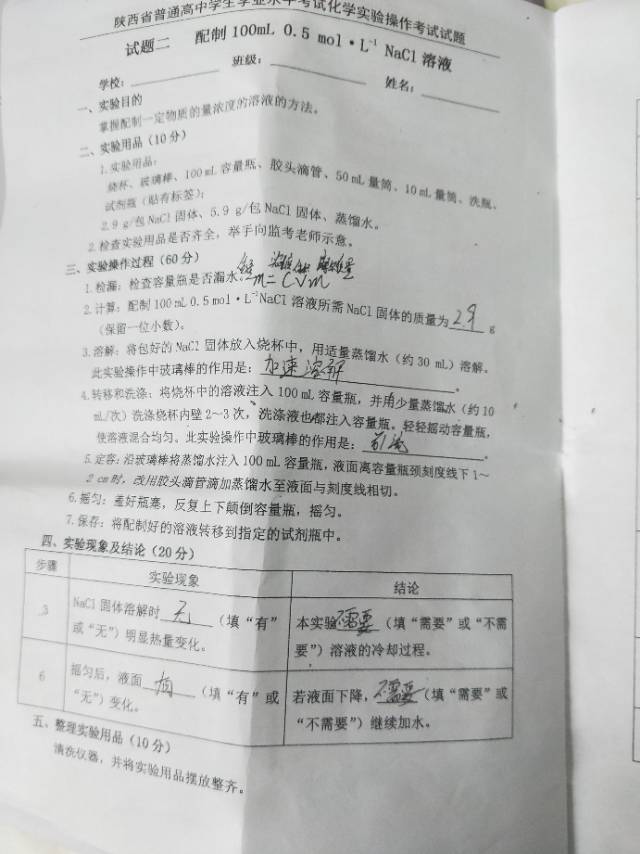 陕西省普通高中学生学业水平考试化学实验操作考试试题
试题二 配制100mL 0.5 mol·L⁻¹ NaCl 溶液
学校: 班级: 姓名:
一、实验目的
掌握配制一定物质的量浓度的溶液的方法。
二、实验用品(10分)
1.实验用品:
烧杯、玻璃棒、100mL容量瓶、胶头滴管、50mL量筒、10mL量筒、洗瓶、
试剂瓶(贴有标签);
2.9 g/包NaCl固体、5.9 g/包NaCl固体、蒸馏水。
2.检查实验用品是否齐全,举手向监考老师示意。
三、实验操作过程(60分)
1.检漏:检查容量瓶是否漏水。
m=CVM
2.计算:配制100mL 0.5 mol·L⁻¹NaCl溶液所需NaCl固体的质量为 2.9 g
(保留一位小数)。
3.溶解:将包好的NaCl固体放入烧杯中,用适量蒸馏水(约30 mL)溶解。
此实验操作中玻璃棒的作用是: 加速溶解 。
4.转移和洗涤:将烧杯中的溶液注入100 mL容量瓶,并用少量蒸馏水(约10
mL/次)洗涤烧杯内壁2~3次,洗涤液也都注入容量瓶。轻轻摇动容量瓶,
使溶液混合均匀。此实验操作中玻璃棒的作用是: 引流 。
5.定容:沿玻璃棒将蒸馏水注入100 mL容量瓶,液面离容量瓶颈刻度线下1~
2 cm时,改用胶头滴管滴加蒸馏水至液面与刻度线相切。
6.摇匀:盖好瓶塞,反复上下颠倒容量瓶,摇匀。
7.保存:将配制好的溶液转移到指定的试剂瓶中。
四、实验现象及结论(20分)
步骤 实验现象 结论
3 NaCl固体溶解时 无 (填“有”
或“无”)明显热量变化。
本实验 不需要 (填“需要”或“不需
要”)溶液的冷却过程。
6 摇匀后,液面 有 (填“有”或
“无”)变化。
若液面下降, 不需要 (填“需要”或
“不需要”)继续加水。
五、整理实验用品(10分)
清洗仪器,并将实验用品摆放整齐。